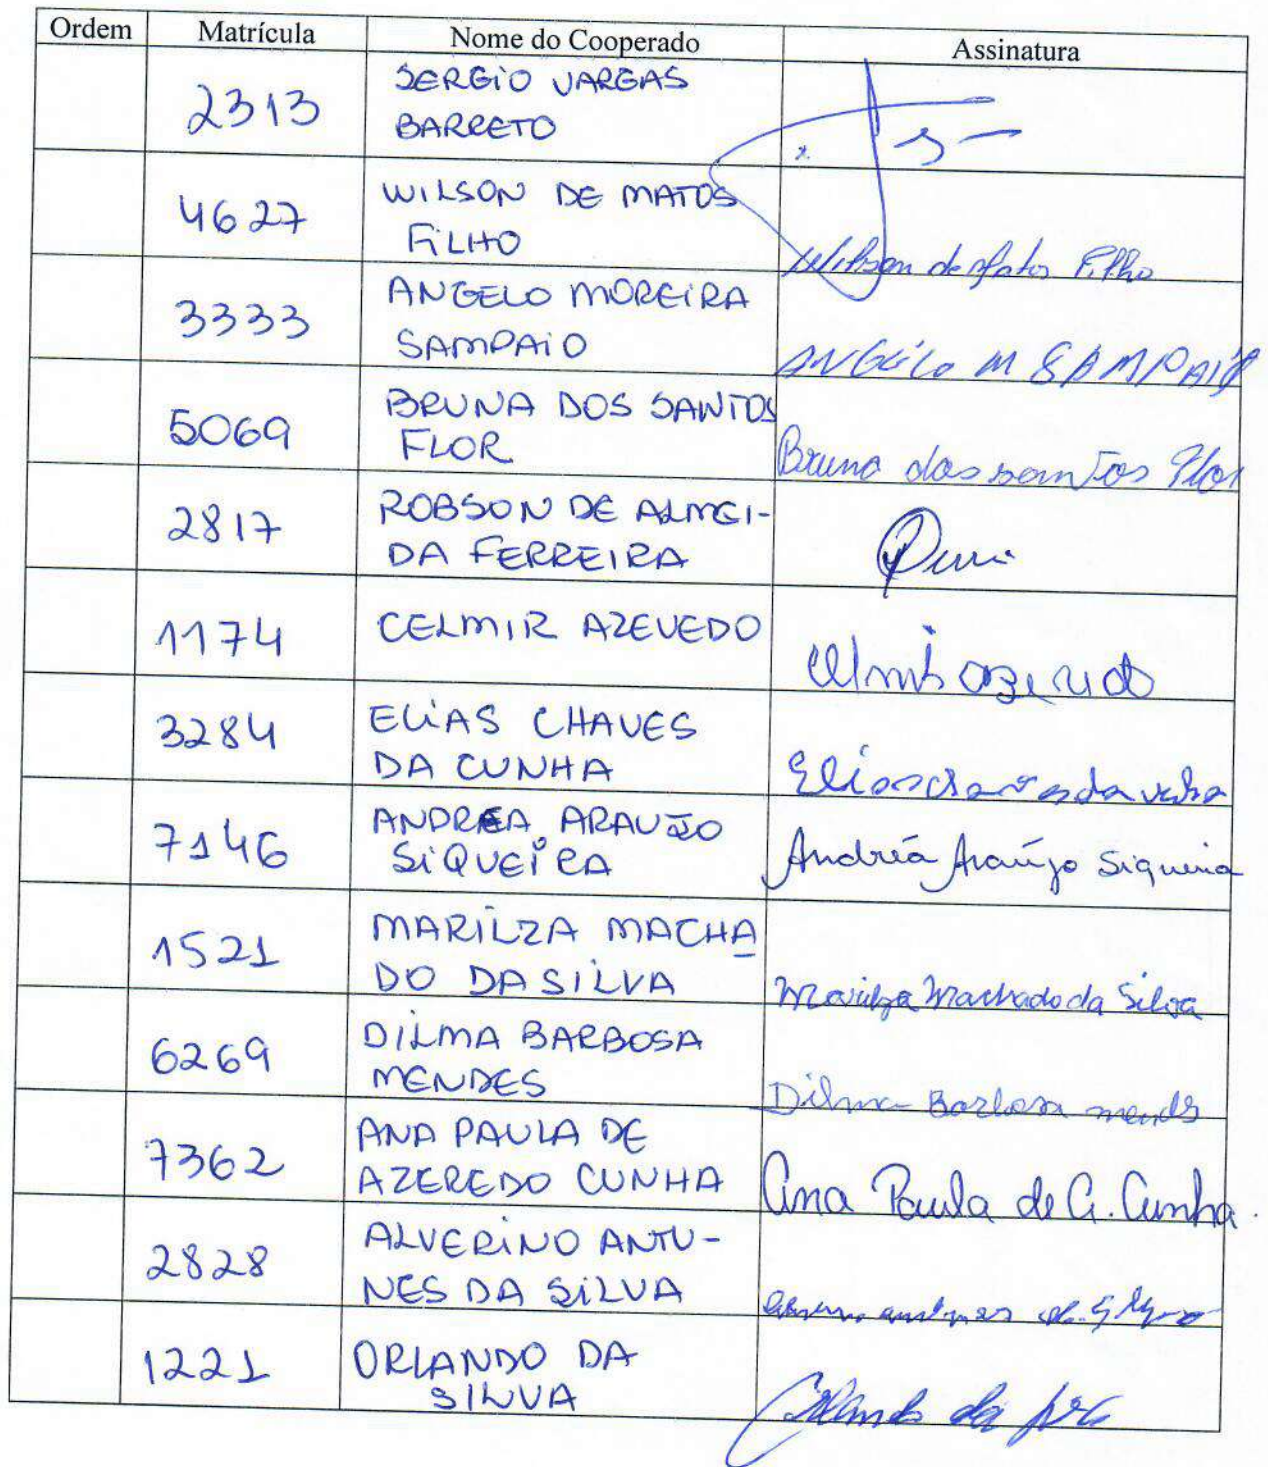 Ordem Matrícula Nome do Cooperado Assinatura
2313 SERGIO VARGAS
BARRETO
4627 WILSON DE MATOS
FILHO
Wilson de Matos Filho
3333 ANGELO MOREIRA
SAMPAIO
ANGELO M SAMPAIO
5069 BRUNA DOS SANTOS
FLOR
Bruna dos santos Flor
2817 ROBSON DE ALMEI-
DA FERREIRA
1174 CELMIR AZEVEDO
Celmir azevedo
3284 ELIAS CHAVES
DA CUNHA
Elias chaves da cunha
7146 ANDREA ARAUJO
SIQUEIRA
Andréa Araújo Siqueira
1521 MARILZA MACHA
DO DA SILVA
Marilza Machado da Silva
6269 DILMA BARBOSA
MENDES
Dilma Barbosa mends
7362 ANA PAULA DE
AZEREDO CUNHA
Ana Paula de A. Cunha.
2828 ALVERINO ANTU-
NES DA SILVA
1221 ORLANDO DA
SILVA
Orlando da